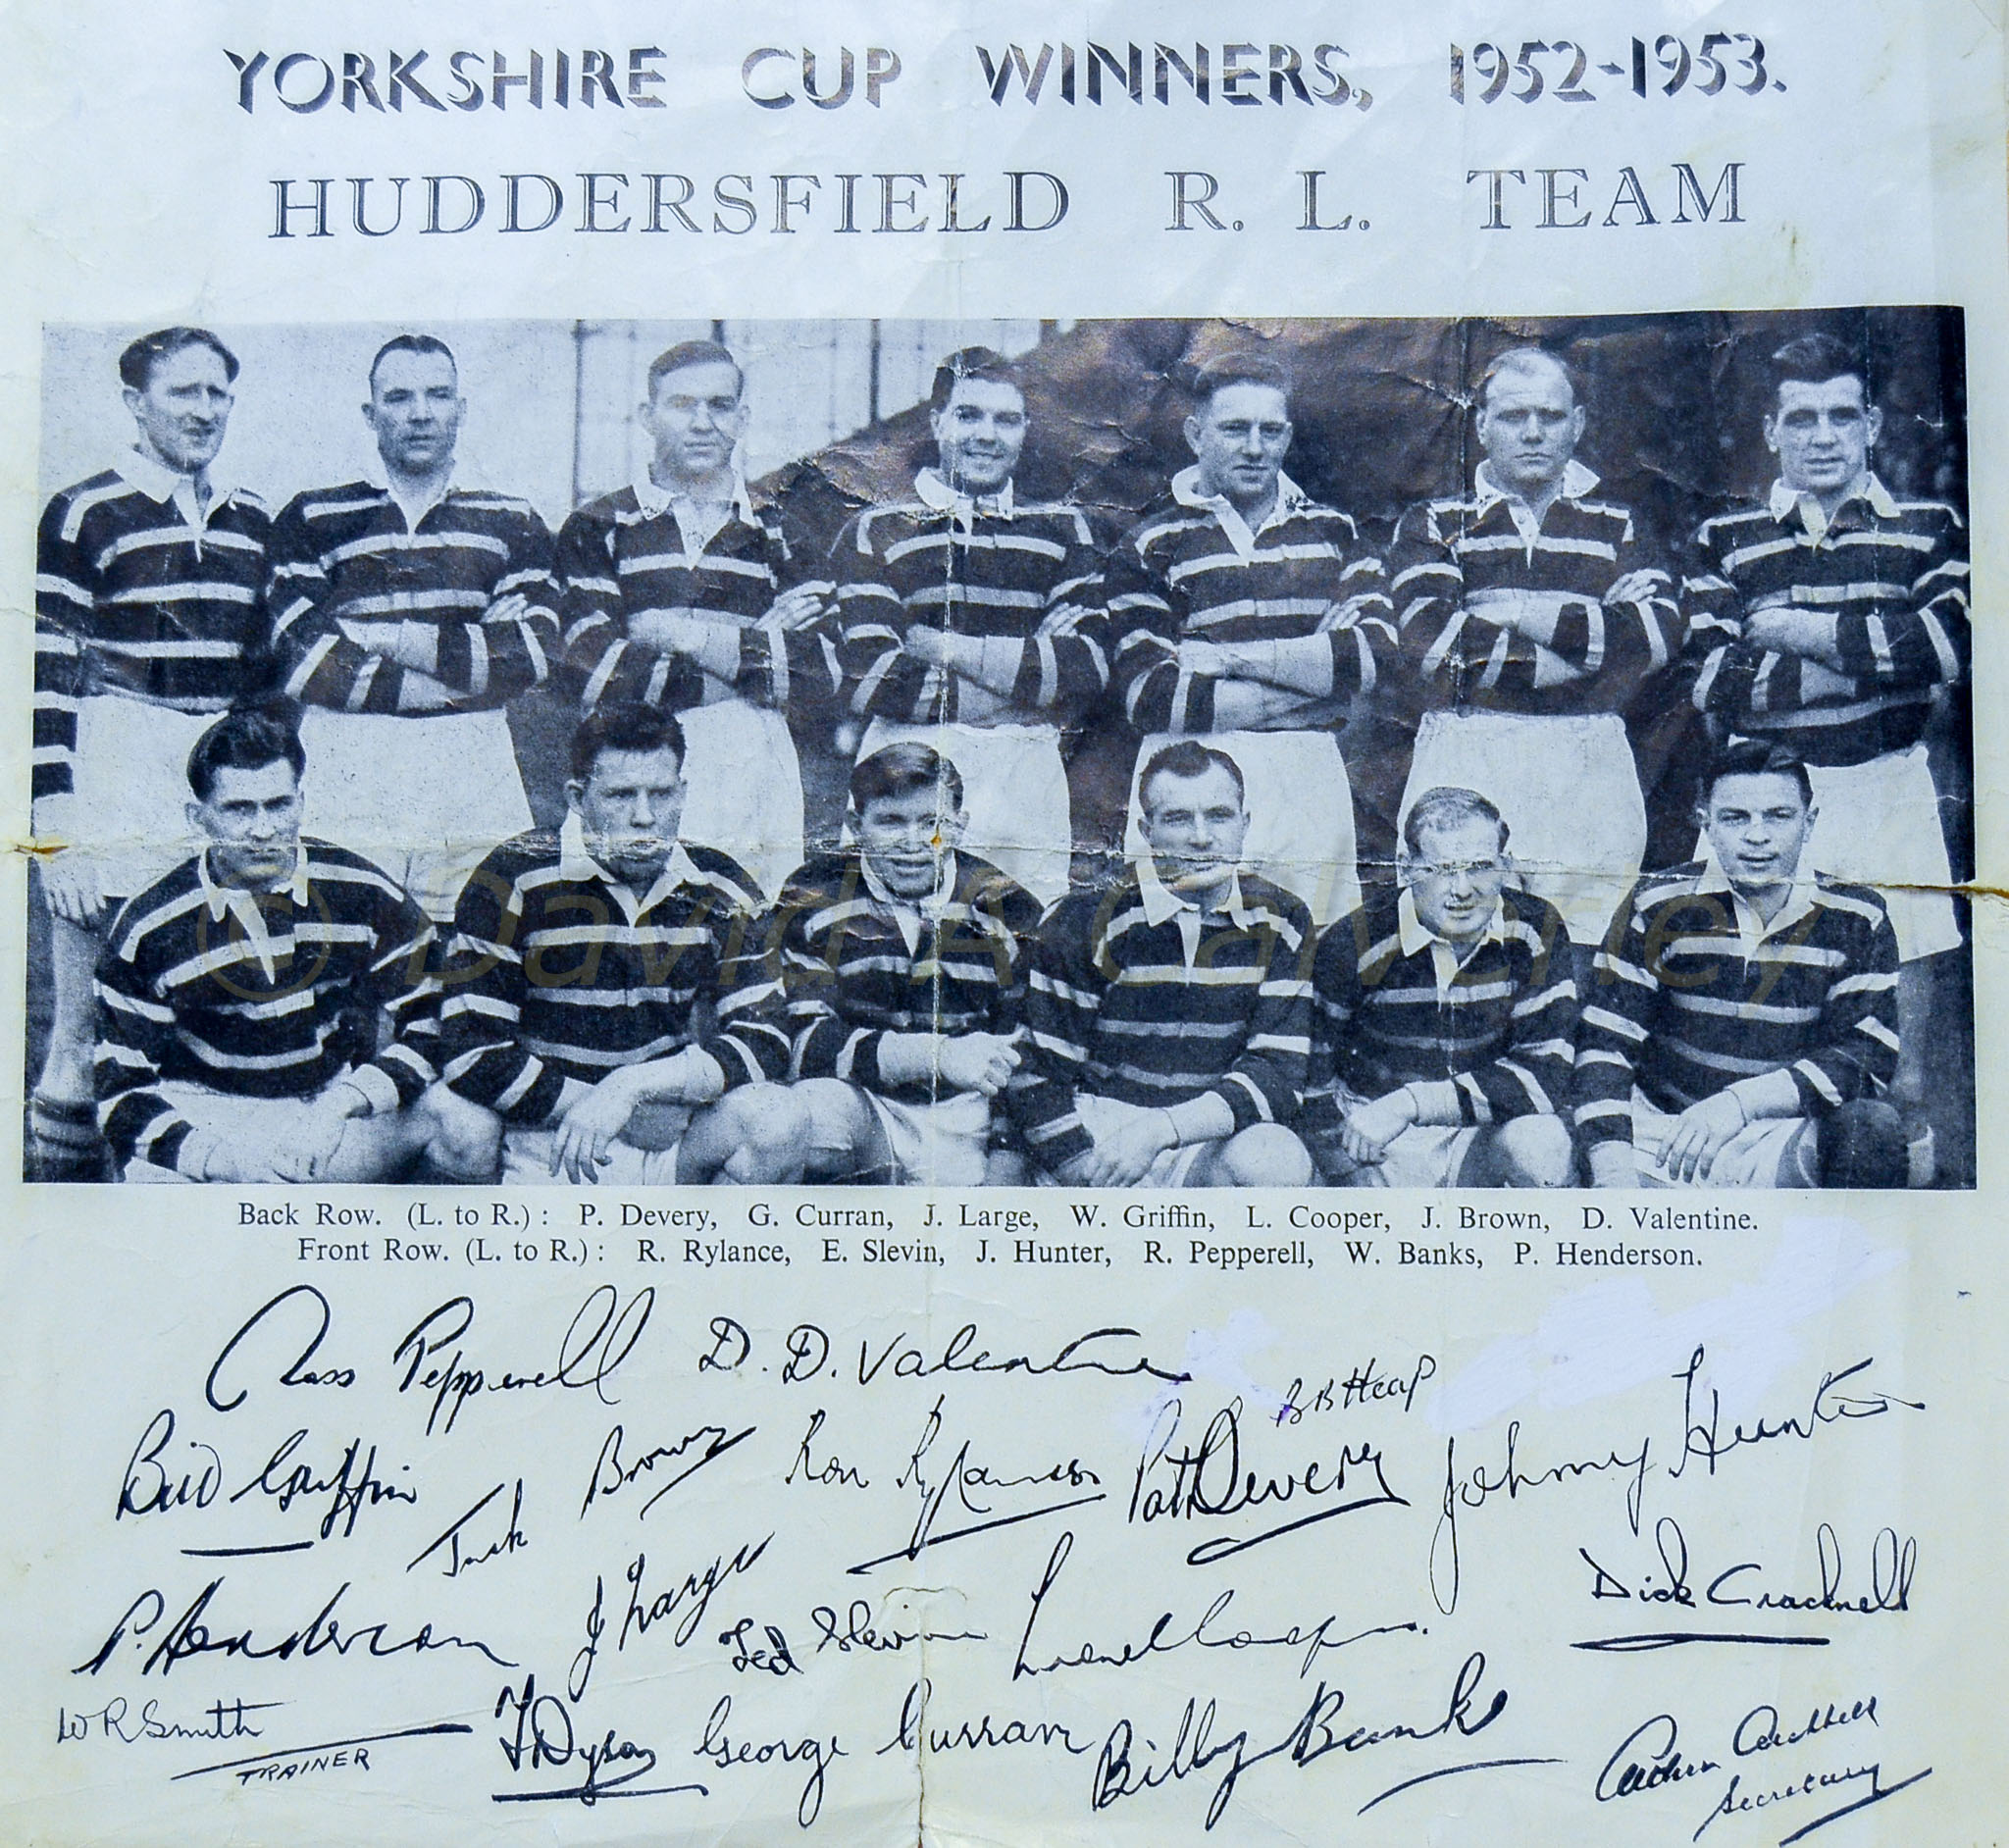 YORKSHIRE CUP WINNERS, 1952-1953.
HUDDERSFIELD R. L. TEAM
© David A Calverley
Back Row. (L. to R.) : P. Devery, G. Curran, J. Large, W. Griffin, L. Cooper, J. Brown, D. Valentine.
Front Row. (L. to R.) : R. Rylance, E. Slevin, J. Hunter, R. Pepperell, W. Banks, P. Henderson.
Russ Pepperell D. D. Valentine
B B Heap
Bill Griffin Jack Brown Ron Rylance Pat Devery Johnny Hunter
P. Henderson J Large Ted Slevin Lionel Cooper. Dick Cracknell
W R Smith F Dyson George Curran Billy Banks
TRAINER
Secretary